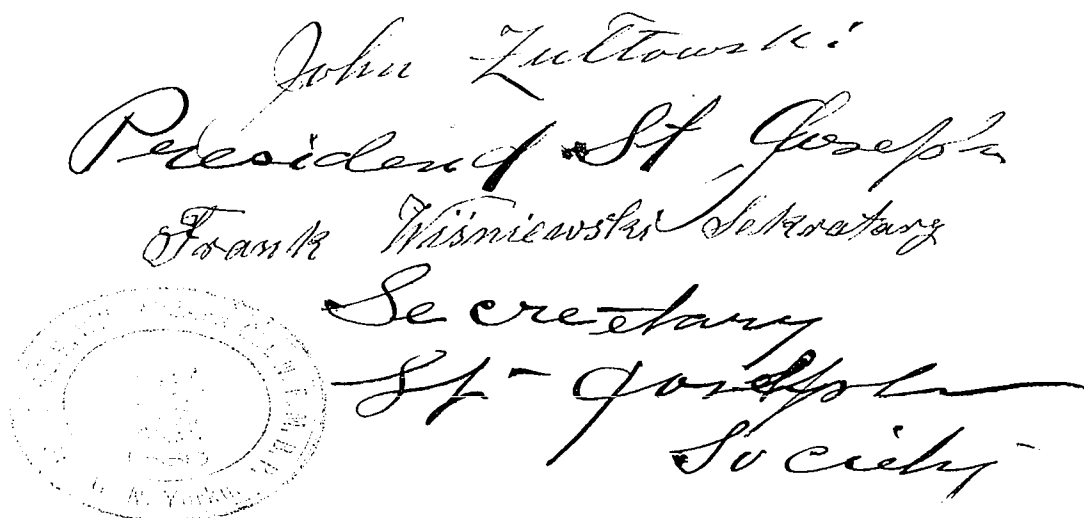 John Zultowski
President St Joseph
Frank Wiśniewski Sekratary
Secretary
St- Joseph
Society